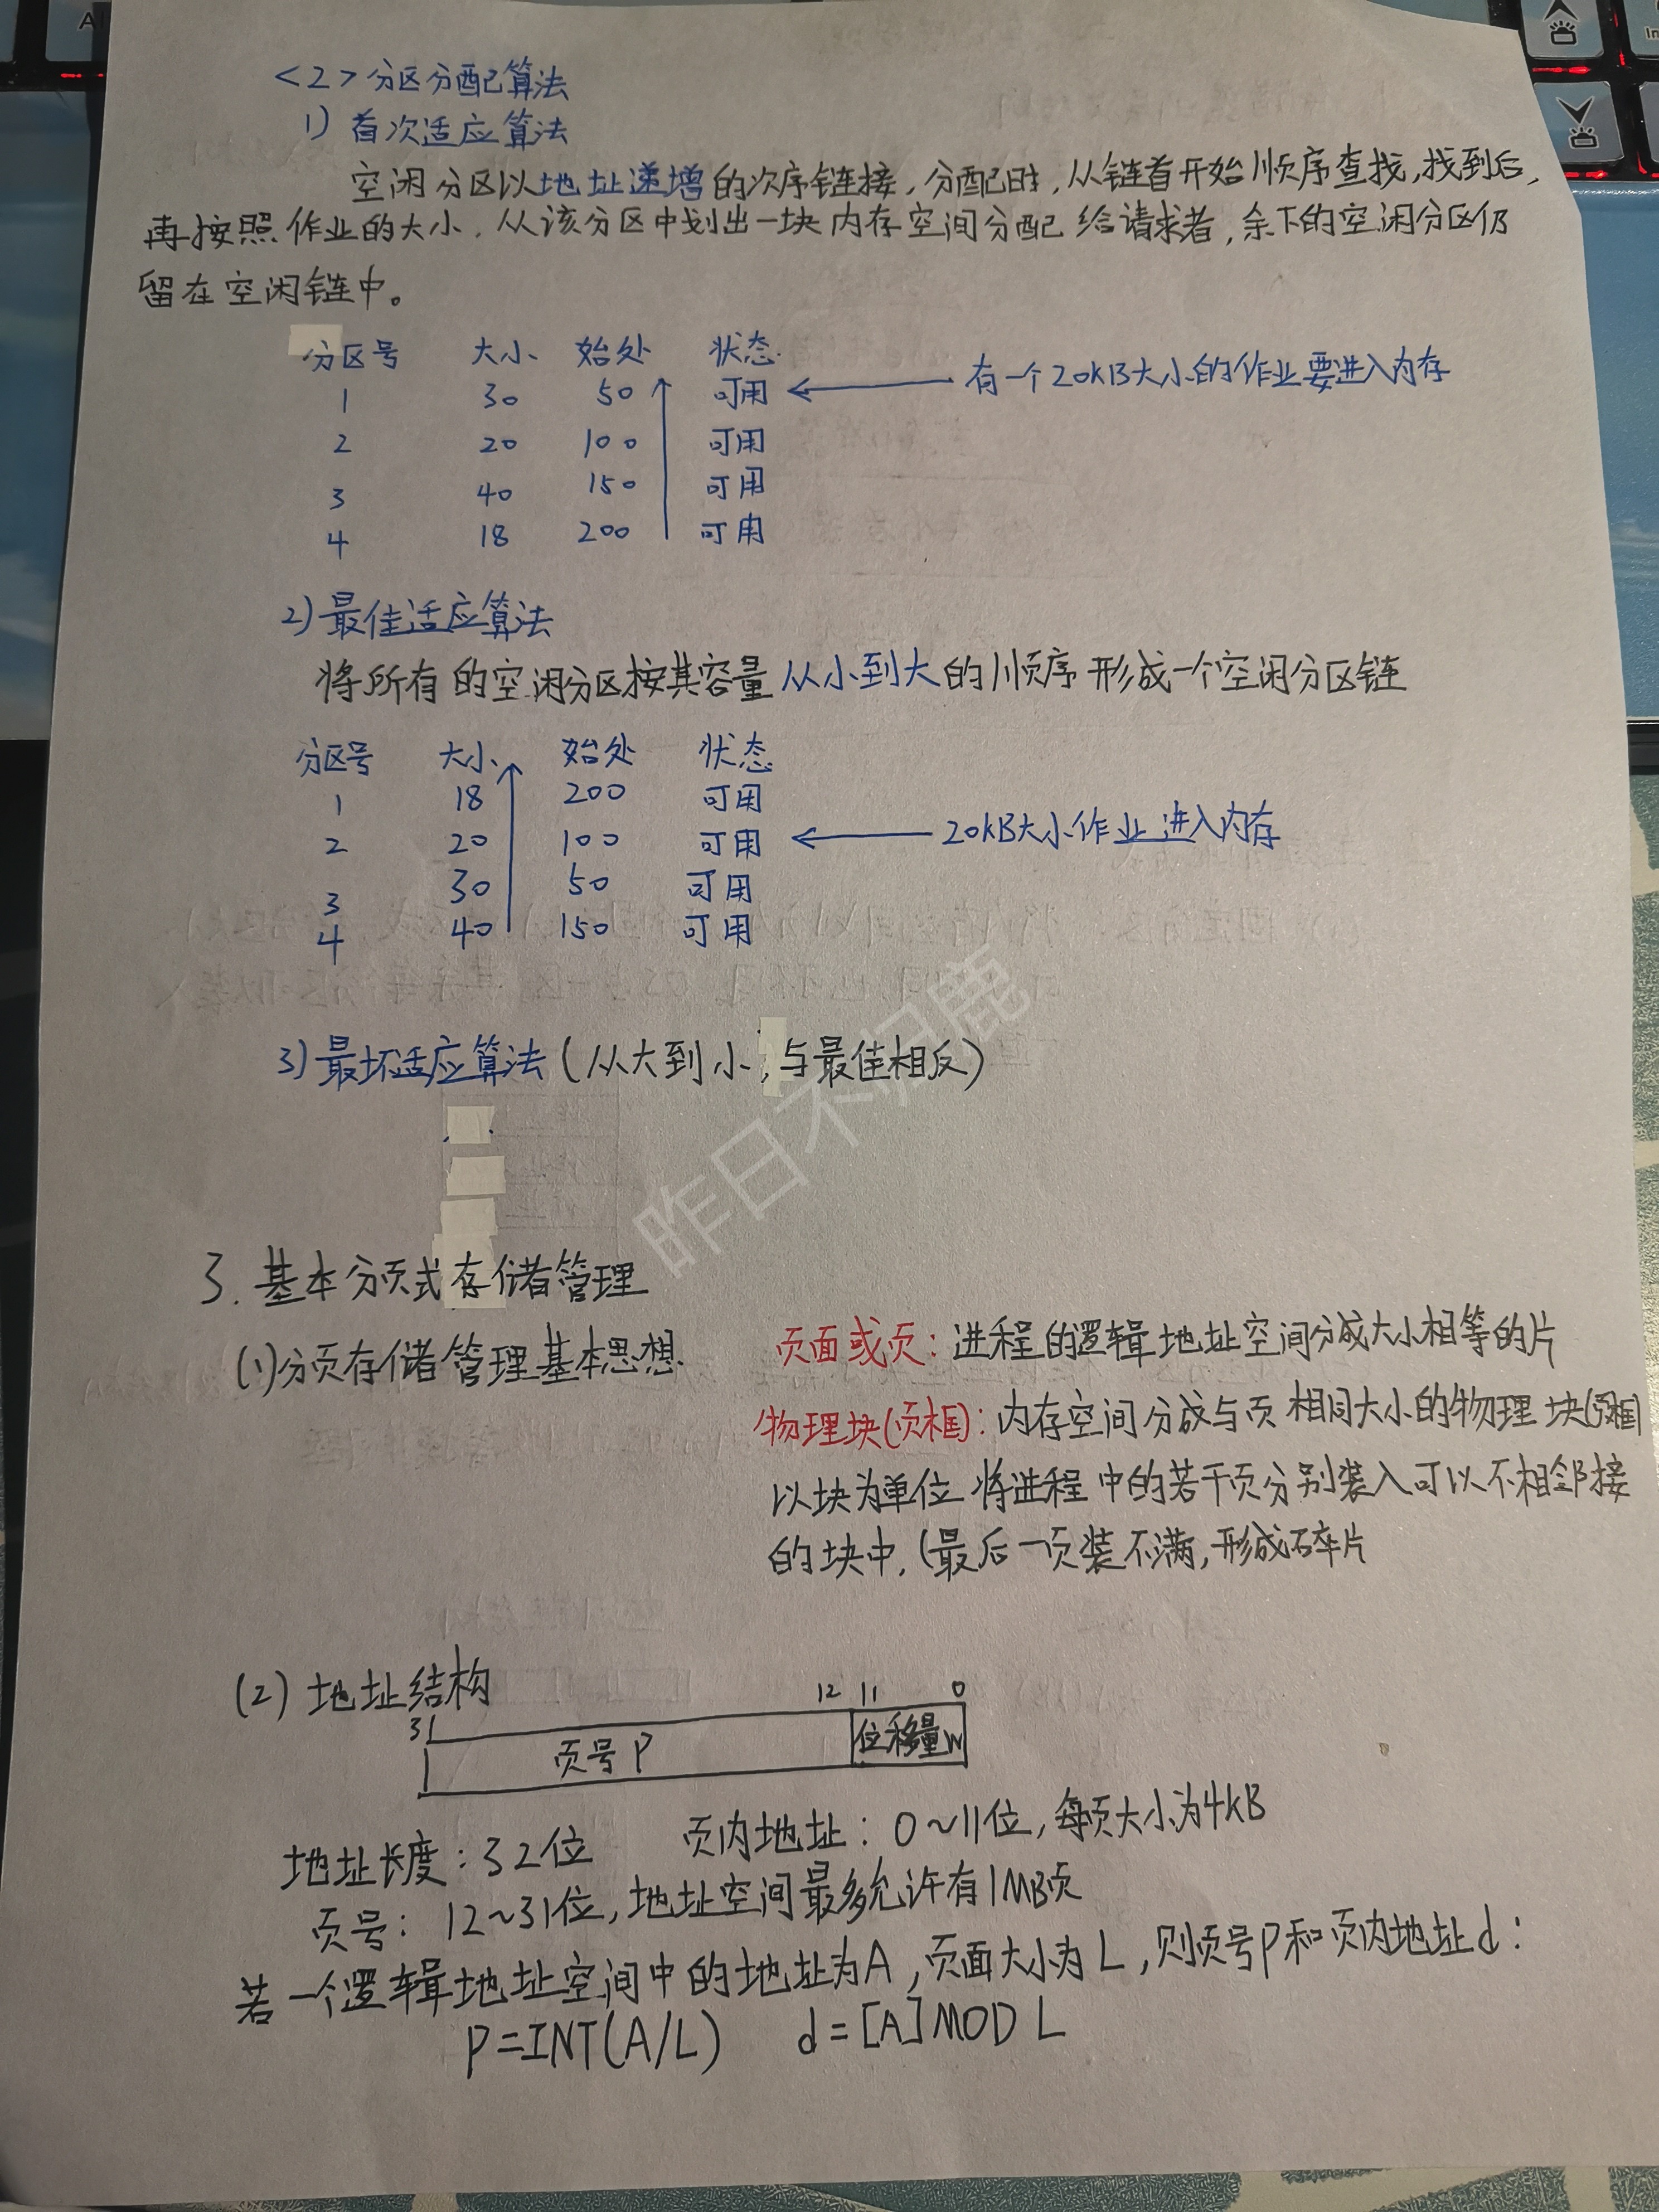 <2>分区分配算法
1) 首次适应算法
空闲分区以地址递增的次序链接,分配时,从链首开始顺序查找,找到后,
再按照作业的大小,从该分区中划出一块内存空间分配给请求者,余下的空闲分区仍
留在空闲链中。
分区号 大小 始处 状态
1 30 50 可用 ← 有一个20kB大小的作业要进入内存
2 20 100 可用
3 40 150 可用
4 18 200 可用
2)最佳适应算法
将所有的空闲分区按其容量从小到大的顺序形成一个空闲分区链
分区号 大小 始处 状态
1 18 200 可用
2 20 100 可用 ← 20kB大小作业进入内存
3 30 50 可用
4 40 150 可用
3)最坏适应算法(从大到小,与最佳相反)
昨日不归鹿
3.基本分页式存储管理
(1)分页存储管理基本思想
页面或页:进程的逻辑地址空间分成大小相等的片
物理块(页框):内存空间分成与页相同大小的物理块(页框)
以块为单位将进程中的若干页分别装入可以不相邻接
的块中,(最后一页装不满,形成碎片
(2)地址结构
31 12 11 0
页号P 位移量W
地址长度:32位 页内地址:0~11位,每页大小为4kB
页号:12~31位,地址空间最多允许有1MB页
若一个逻辑地址空间中的地址为A,页面大小为L,则页号P和页内地址d:
P=INT(A/L) d=[A]MOD L